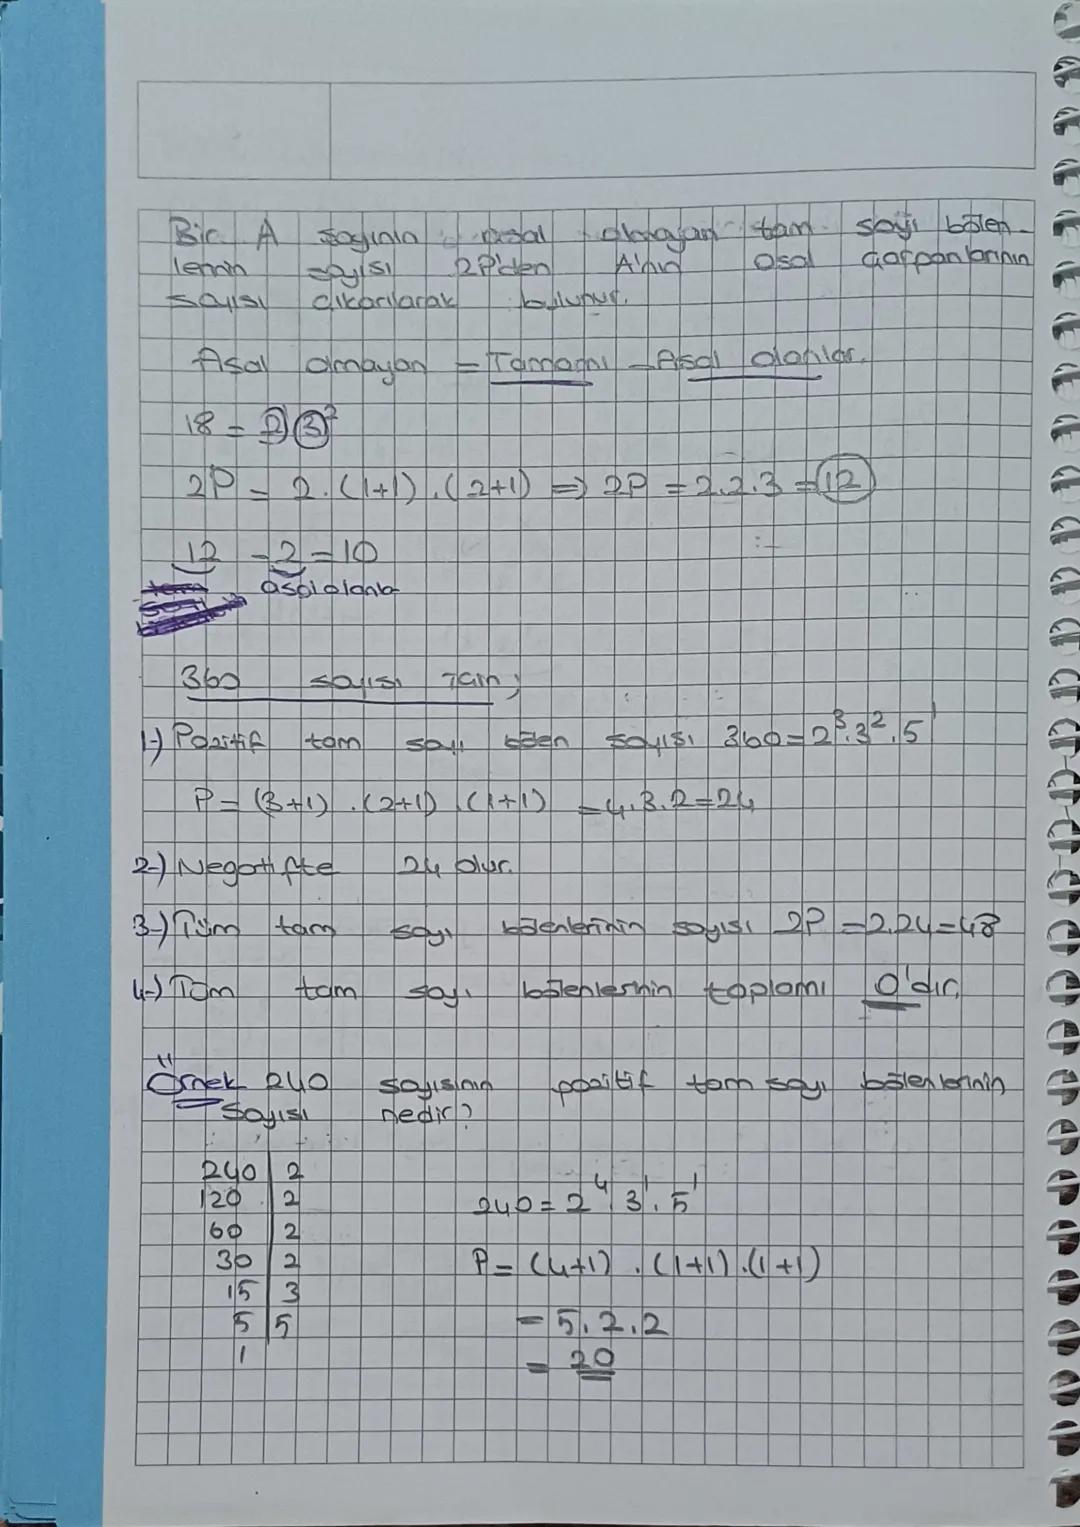 Bir A sayının asal olmayan tam sayı bölen-
lerinin sayısı 2P'den A'nın asal çarpanlarının
sayısı çıkarılarak bulunur.
Asal olmayan = Tamamı - Asal olanlar.
18 = 2 3²
2P = 2.(1+1).(2+1) => 2P = 2.2.3 = 12
12 - 2 = 10
asal olanlar
360 sayısı için;
1-) Pozitif tam sayı bölen sayısı 360 = 2³.3².5¹
P = (3+1).(2+1).(1+1) = 4.3.2 = 24
2-) Negatifte 24 olur.
3-) Tüm tam sayı bölenlerinin sayısı 2P = 2.24 = 48
4-) Tam tam sayı bölenlerinin toplamı 0'dır.
Örnek 240 sayısının pozitif tam sayı bölenlerinin
sayısı nedir?
240 | 2
120 | 2
60 | 2
30 | 2
15 | 3
5 | 5
1
240 = 2⁴.3¹.5¹
P = (4+1).(1+1).(1+1)
= 5.2.2
= 20